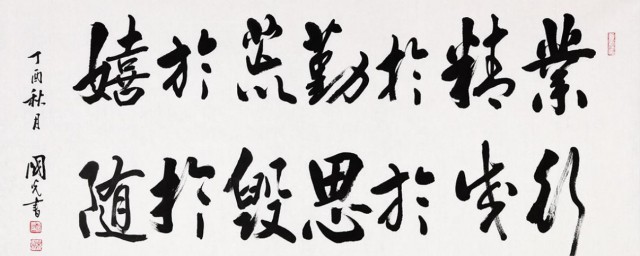 業精於勤荒於嬉
行成於思毀於随
丁酉秋月
國光書